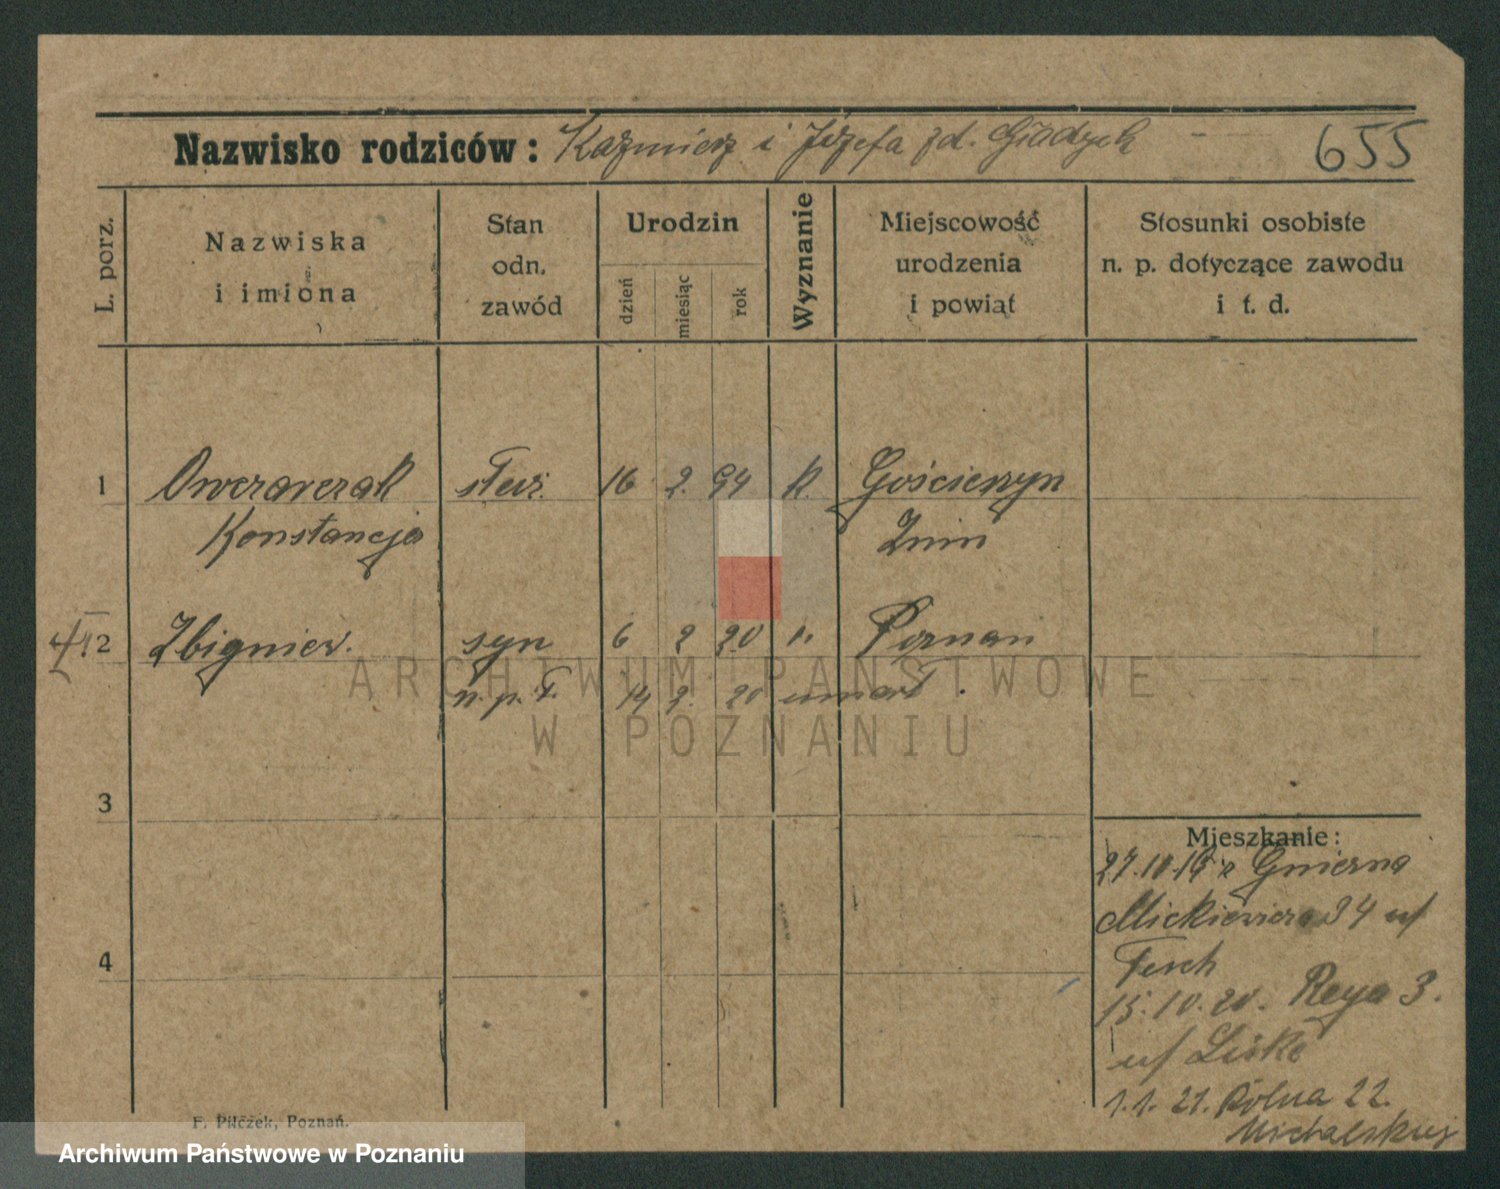 Nazwisko rodziców: Kaźmierz i Józefa zd. 655
L. porz.
Nazwiska
i imiona
Stan
odn.
zawód
Urodzin
dzień
miesiąc
rok
Wyznanie
Miejscowość
urodzenia
i powiat
Stosunki osobiste
n. p. dotyczące zawodu
i t. d.
1 Owczarczak służ. 16 2. 94 k. Gościeszyn
Konstancja Żnin
2 Zbigniew. syn 6 2 20 " Poznań
n. p. 14 2. 20 umarł.
ARCHIWUM PAŃSTWOWE
W POZNANIU
3
Mieszkanie:
27.10.19 z Gniezna
Mickiewicza 34 u/
4
Tesch
15.10.20. Reya 3.
u/ Liske
1.1.21. Rolna 22.
Michalskiej
F. Pilczek, Poznań.
Archiwum Państwowe w Poznaniu